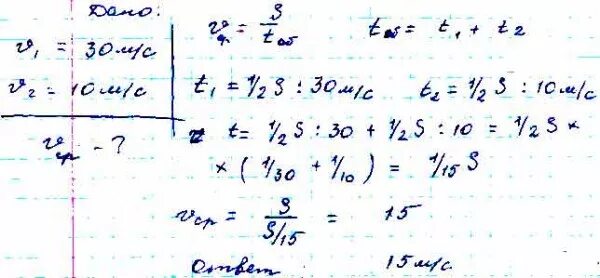 Дано:
v₁ = 30 м/с
v₂ = 10 м/с
vср - ?
vср = S/tоб tоб = t₁ + t₂
t₁ = 1/2 S : 30 м/с t₂ = 1/2 S : 10 м/с
t = 1/2 S : 30 + 1/2 S : 10 = 1/2 S ×
× (1/30 + 1/10) = 1/15 S
vср = S / S/15 = 15
Ответ 15 м/с